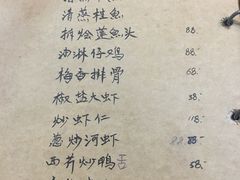 清蒸桂鱼
拆烩莲鱼头 88.
油淋仔鸡 88.
梅香排骨 68.
椒盐大虾 58.
炒虾仁 118.
葱炒河虾 88.
西芹炒鸭舌 58.